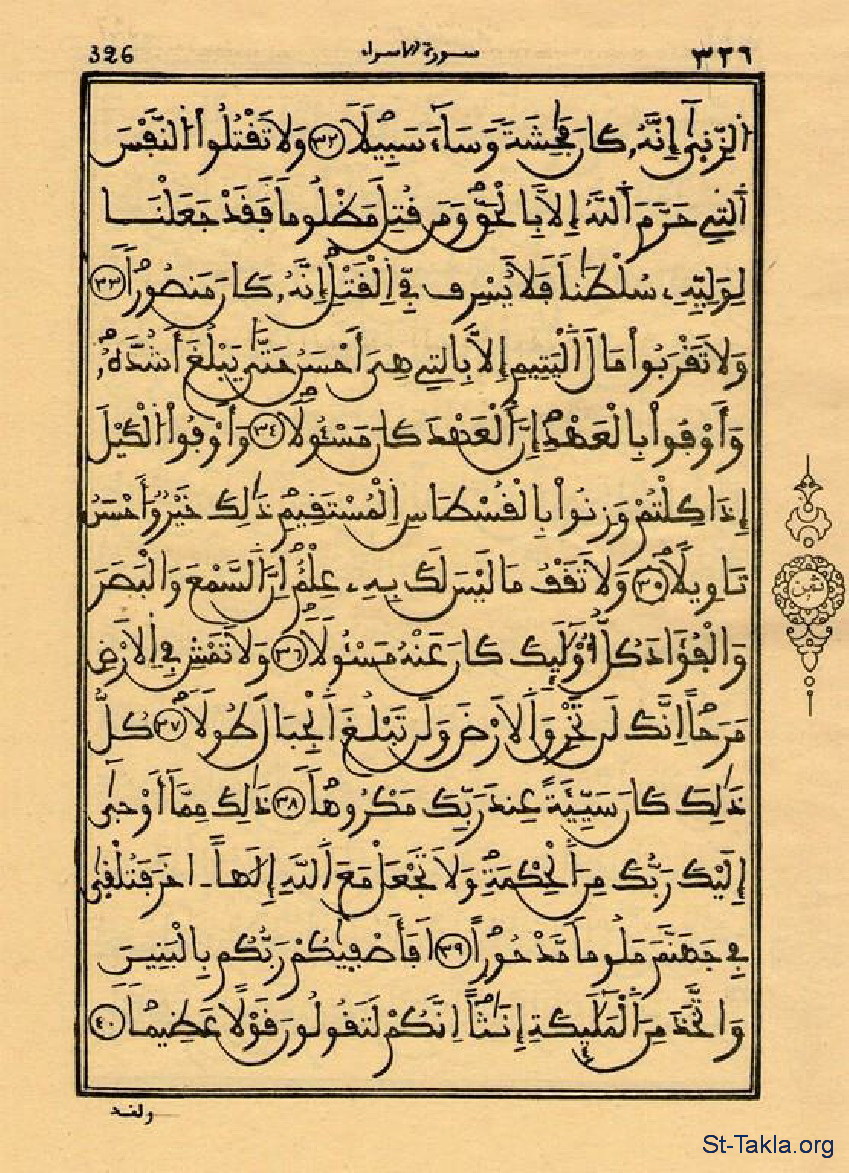 326 سورة الإسراء ٣٢٦
اَ۬لزِّنٜىٰٓ إِنَّهُۥ كَانَ فَٰحِشَةٗ وَسَآءَ سَبِيلاٗۖ ٣٢ وَلَا تَقْتُلُواْ اُ۬لنَّفْسَ
اَ۬لتِے حَرَّمَ اَ۬للَّهُ إِلَّا بِالْحَقِّۖ وَمَن قُتِلَ مَظْلُوماٗ فَقَدْ جَعَلْنَا
لِوَلِيِّهِۦ سُلْطَٰناٗ فَلَا يُسْرِف فِّے اِ۬لْقَتْلِۖ إِنَّهُۥ كَانَ مَنصُوراٗۖ ٣٣
وَلَا تَقْرَبُواْ مَالَ اَ۬لْيَتِيمِ إِلَّا بِالتِے هِيَ أَحْسَنُ حَتَّىٰ يَبْلُغَ أَشُدَّهُۥۖ
وَأَوْفُواْ بِالْعَهْدِۖ إِنَّ اَ۬لْعَهْدَ كَانَ مَسْـُٔولاٗۖ ٣٤ وَأَوْفُواْ اُ۬لْكَيْلَ
إِذَا كِلْتُمْ وَزِنُواْ بِالْقُسْطَاسِ اِ۬لْمُسْتَقِيمِۖ ذَٰلِكَ خَيْرٞ وَأَحْسَنُ
تَاوِيلاٗۖ ٣٥ وَلَا تَقْفُ مَا لَيْسَ لَكَ بِهِۦ عِلْمٌۖ اِنَّ اَ۬لسَّمْعَ وَالْبَصَرَ
وَالْفُؤَادَ كُلُّ أُوْلَٰٓئِكَ كَانَ عَنْهُ مَسْـُٔولاٗۖ ٣٦ وَلَا تَمْشِ فِے اِ۬لَارْضِ
مَرَحاًۖ اِنَّكَ لَن تَخْرِقَ اَ۬لَارْضَ وَلَن تَبْلُغَ اَ۬لْجِبَالَ طُولاٗۖ ٣٧ كُلُّ
ذَٰلِكَ كَانَ سَيِّئَةً عِندَ رَبِّكَ مَكْرُوهاٗۖ ٣٨ ذَٰلِكَ مِمَّآ أَوْحَىٰٓ
إِلَيْكَ رَبُّكَ مِنَ اَ۬لْحِكْمَةِۖ وَلَا تَجْعَلْ مَعَ اَ۬للَّهِ إِلَٰهاً اٰخَرَ فَتُلْقَىٰ
فِے جَهَنَّمَ مَلُوماٗ مَّدْحُوراًۖ ٣٩ اَفَأَصْفَىٰكُمْ رَبُّكُم بِالْبَنِينَ
وَاتَّخَذَ مِنَ اَ۬لْمَلَٰٓئِكَةِ إِنَٰثاًۖ اِنَّكُمْ لَتَقُولُونَ قَوْلاً عَظِيماٗۖ ٤٠
ثمن
ولقد
St-Takla.org